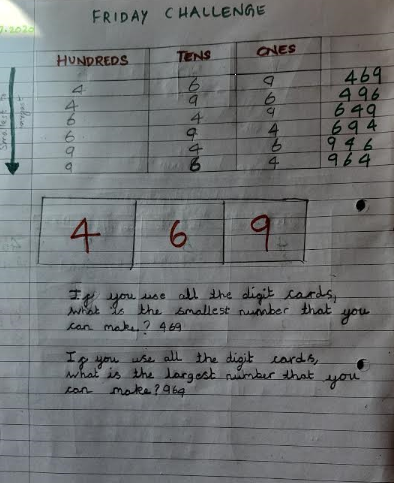 FRIDAY CHALLENGE
.2020
HUNDREDS TENS ONES
4 6 9 469
4 9 6 496
6 4 9 649
6 9 4 694
9 4 6 946
9 6 4 964
Smallest to
4 6 9
If you use all the digit cards,
what is the smallest number that you
can make? 469
If you use all the digit cards,
what is the largest number that you
can make? 964